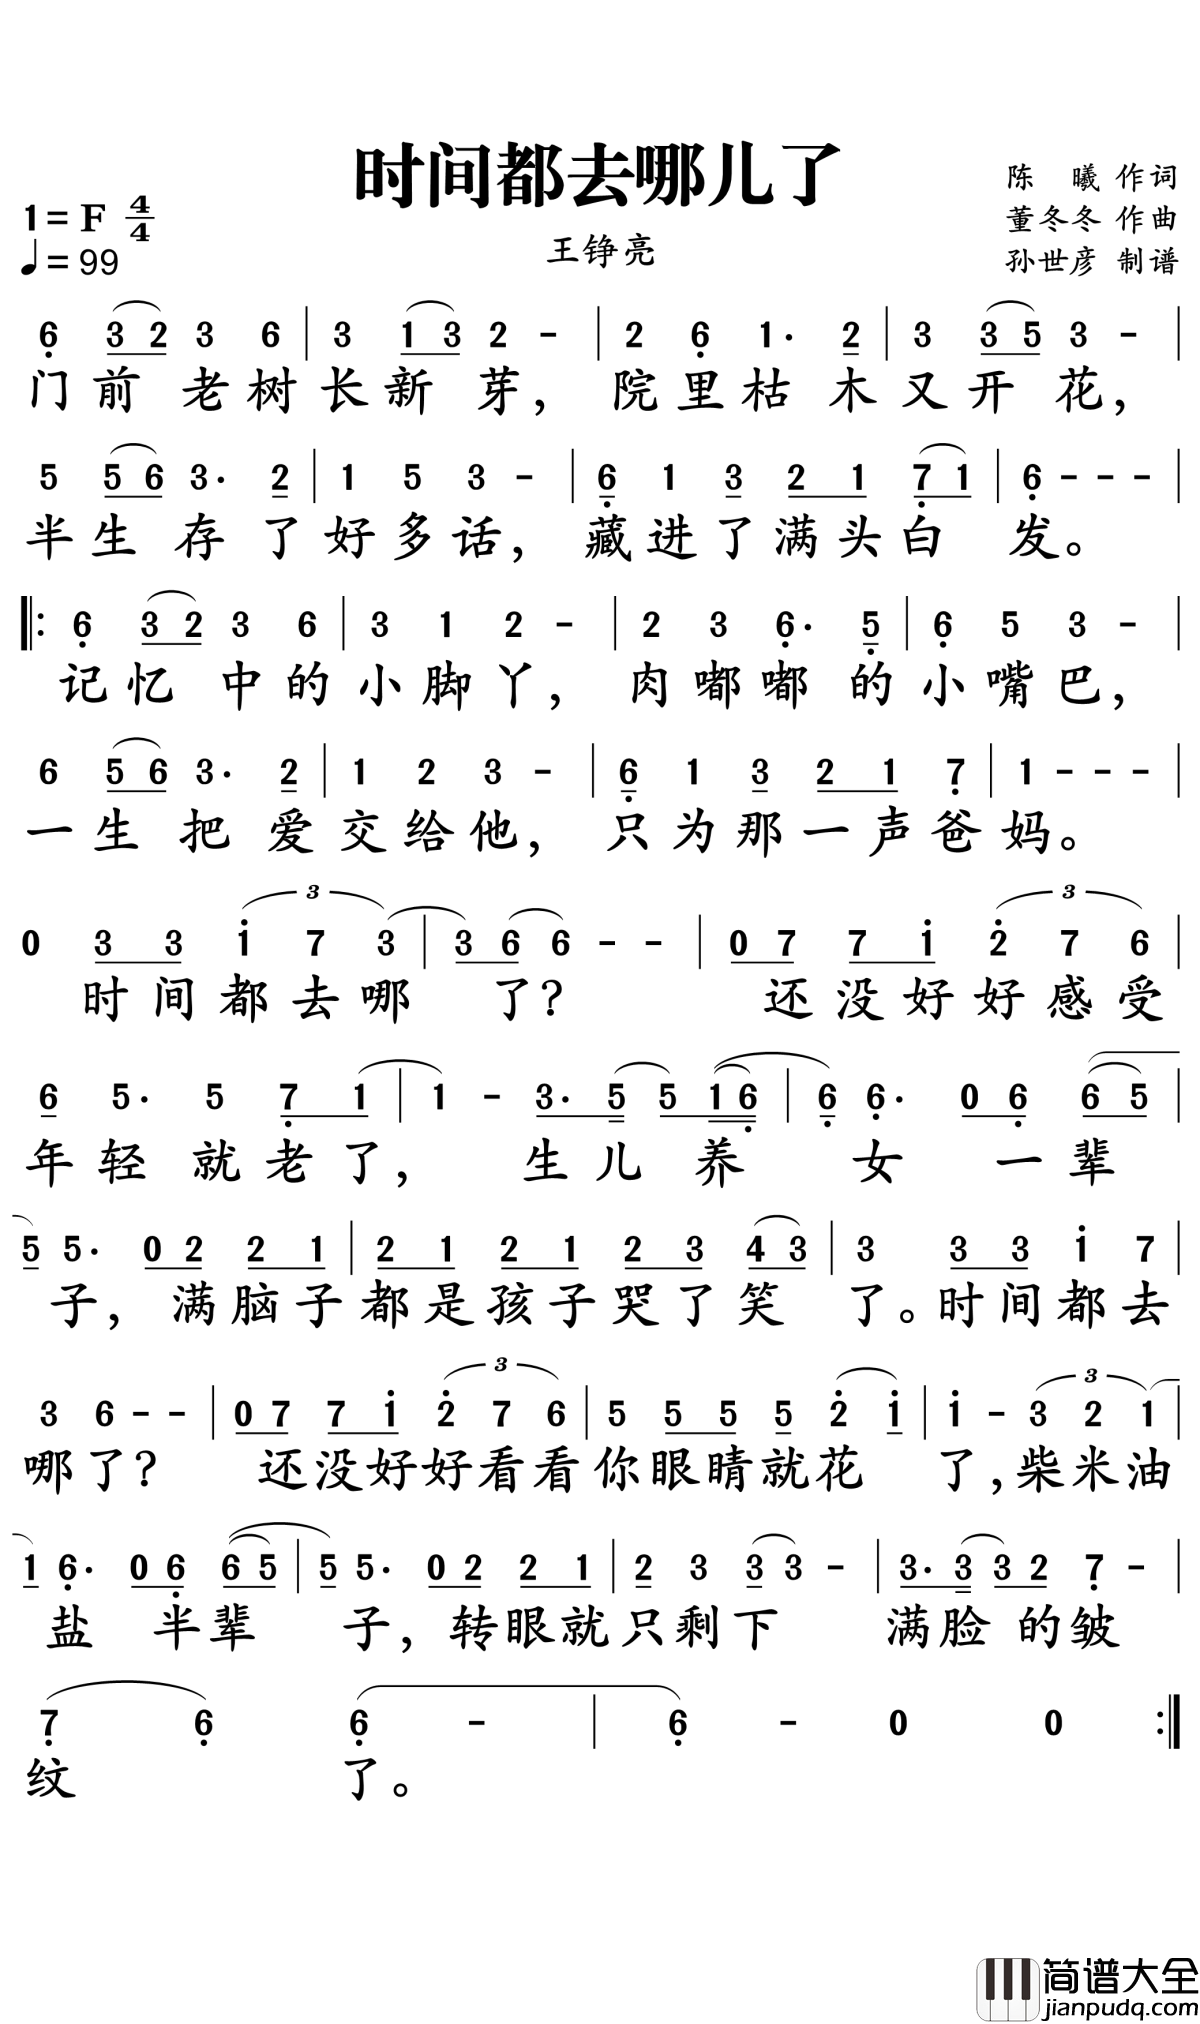 时间都去哪儿了
陈　曦 作词
1= F 4/4
董冬冬 作曲
♩= 99
王铮亮
孙世彦 制谱
6̣ 3 2 3 6 | 3 1 3 2 - | 2 6̣ 1· 2 | 3 3 5 3 - |
门前老树长新芽，院里枯木又开花，
5 5 6 3· 2 | 1 5 3 - | 6̣ 1 3 2 1 7̣ 1 | 6̣ - - - |
半生存了好多话，藏进了满头白发。
‖: 6̣ 3 2 3 6 | 3 1 2 - | 2 3 6̣· 5̣ | 6̣ 5 3 - |
记忆中的小脚丫，肉嘟嘟的小嘴巴，
6 5 6 3· 2 | 1 2 3 - | 6̣ 1 3 2 1 7̣ | 1 - - - |
一生把爱交给他，只为那一声爸妈。
3 3 3
0 3 3 1̇ 7 3 | 3 6 6 - - | 0 7 7 1̇ 2̇ 7 6 |
时间都去哪了？还没好好感受
6 5· 5 7̣ 1 | 1 - 3· 5 5 1 6̣ | 6̣ 6̣· 0 6̣ 6 5 |
年轻就老了，生儿养女一辈
5 5· 0 2 2 1 | 2 1 2 1 2 3 4 3 | 3 3 3 1̇ 7 |
子，满脑子都是孩子哭了笑了。时间都去
3 3
3 6 - - | 0 7 7 1̇ 2̇ 7 6 | 5 5 5 5 2̇ 1̇ | 1̇ - 3 2 1 |
哪了？还没好好看看你眼睛就花了，柴米油
1 6̣· 0 6̣ 6 5 | 5 5· 0 2 2 1 | 2 3 3 3 - | 3· 3 3 2 7̣ - |
盐半辈子，转眼就只剩下满脸的皱
7̣ 6̣ 6̣ - | 6̣ - 0 0 :‖
纹了。
简谱大全
jianpudq.com